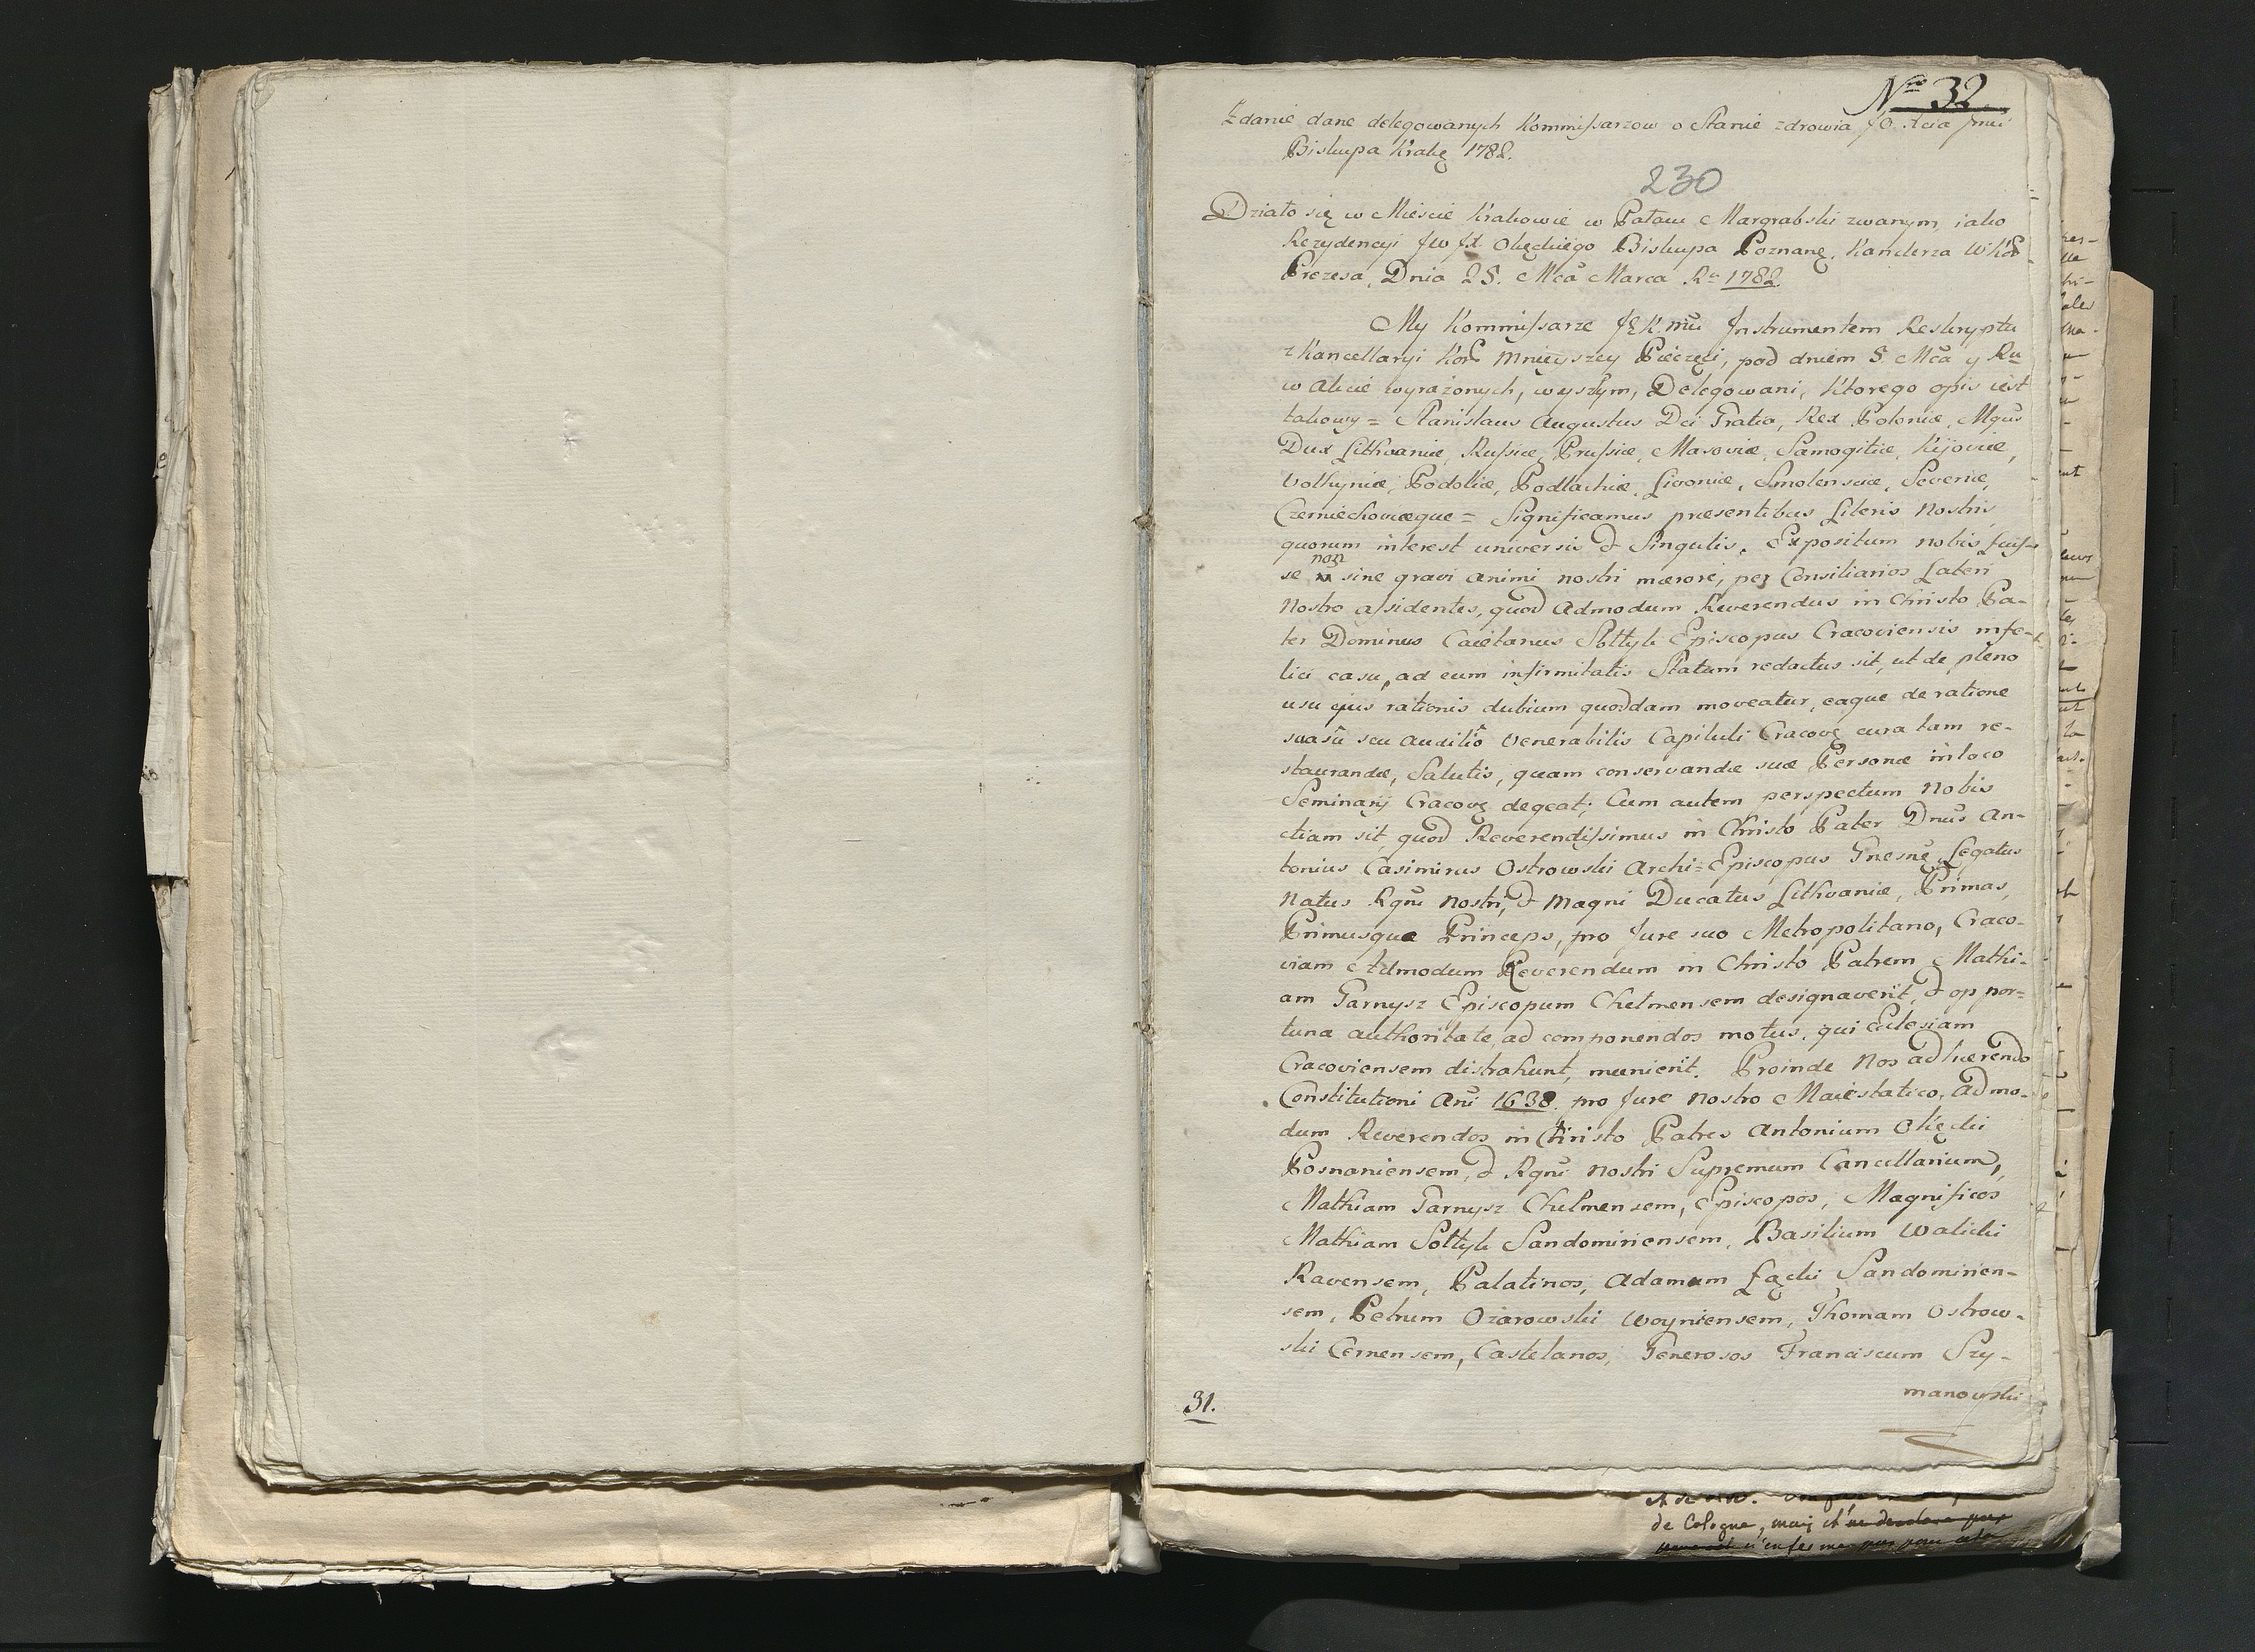 Nro 32
Zdanie dane delegowanych Kommissarzow o Stanie zdrowia JO. Xcia Jmci
Biskupa Krakg 1782.
230
Działo się w Mieście Krakowie w Pałacu Margrabski zwanym, iako
Rezydencyi JW JX. Okęckiego Biskupa Poznang, Kanclerza W Kor
Prezesa, Dnia 25. Mca Marca Ru 1782.
My Kommissarze JKMci Instrumentem Reskryptu
z Kancellaryi Kor Mnieyszey Pieczęci, pod dniem 5. Mca y Ru
w Akcie wyrażonych, wyszłym, Delegowani, Ktorego opis iest
takowy = Stanislaus Augustus Dei Gratia, Rex Poloniæ, Mgus
Dux Lithvaniæ, Russiæ, Prussiæ, Masoviæ, Samogitiæ, Kijoviæ,
Volhyniæ, Podoliæ, Podlachiæ, Livoniæ, Smolensciæ, Severiæ,
Czerniechoviæque = Significamus præsentibus Literis Nostris
quorum interest universis & Singulis. Expositum nobis fuis-
se non sine gravi animi nostri mærore, per Consiliarios Lateri
Nostro assidentes, quod Admodum Reverendus in Christo Pa-
ter Dominus Caietanus Sołtyk Episcopus Cracoviensis infe-
lici casu, ad eum infirmitatis Statum redactus sit, ut de pleno
usu ejus rationis dubium quoddam moveatur, eaque de ratione
suasu seu auxilio Venerabilis Capituli Cracovg cura tam re-
staurandæ, Salutis, quam conservandæ suæ Personæ in loco
Seminarij Cracovg degeat; Cum autem perspectum Nobis
etiam sit, quod Reverendissimus in Christo Pater Dnus An-
tonius Casimirus Ostrowski Archi=Episcopus Gnesng Legatus
Natus Rgni Nostri, & Magni Ducatus Lithvaniæ, Primas,
Primusque Princeps, pro Jure suo Metropolitano, Craco-
viam Admodum Reverendum in Christo Patrem Mathi-
am Garnysz Episcopum Chelmensem designaverit, & oppor-
tuna authoritate, ad componendos motus, qui Eclesiam
Cracoviensem distrahunt, munierit. Proinde Nos adhærendo
Constitutioni Ani 1638. pro Jure Nostro Maiestatico, Admo-
dum Reverendos in Christo Patres Antonium Okęcki
Posnaniensem, & Rgni Nostri Supremum Cancellarium,
Mathiam Garnysz Chelmensem, Episcopos, Magnificos
Mathiam Sołtyk Sandomiriensem, Basilium Walicki
Ravensem, Palatinos, Adamum Łącki Sandomirien-
sem, Petrum Ożarowski Woyniensem, Thomam Ostrow-
ski Cernensem, Castelanos, Generosos Franciscum Szy-
manowski
31.
de Cologne, mais